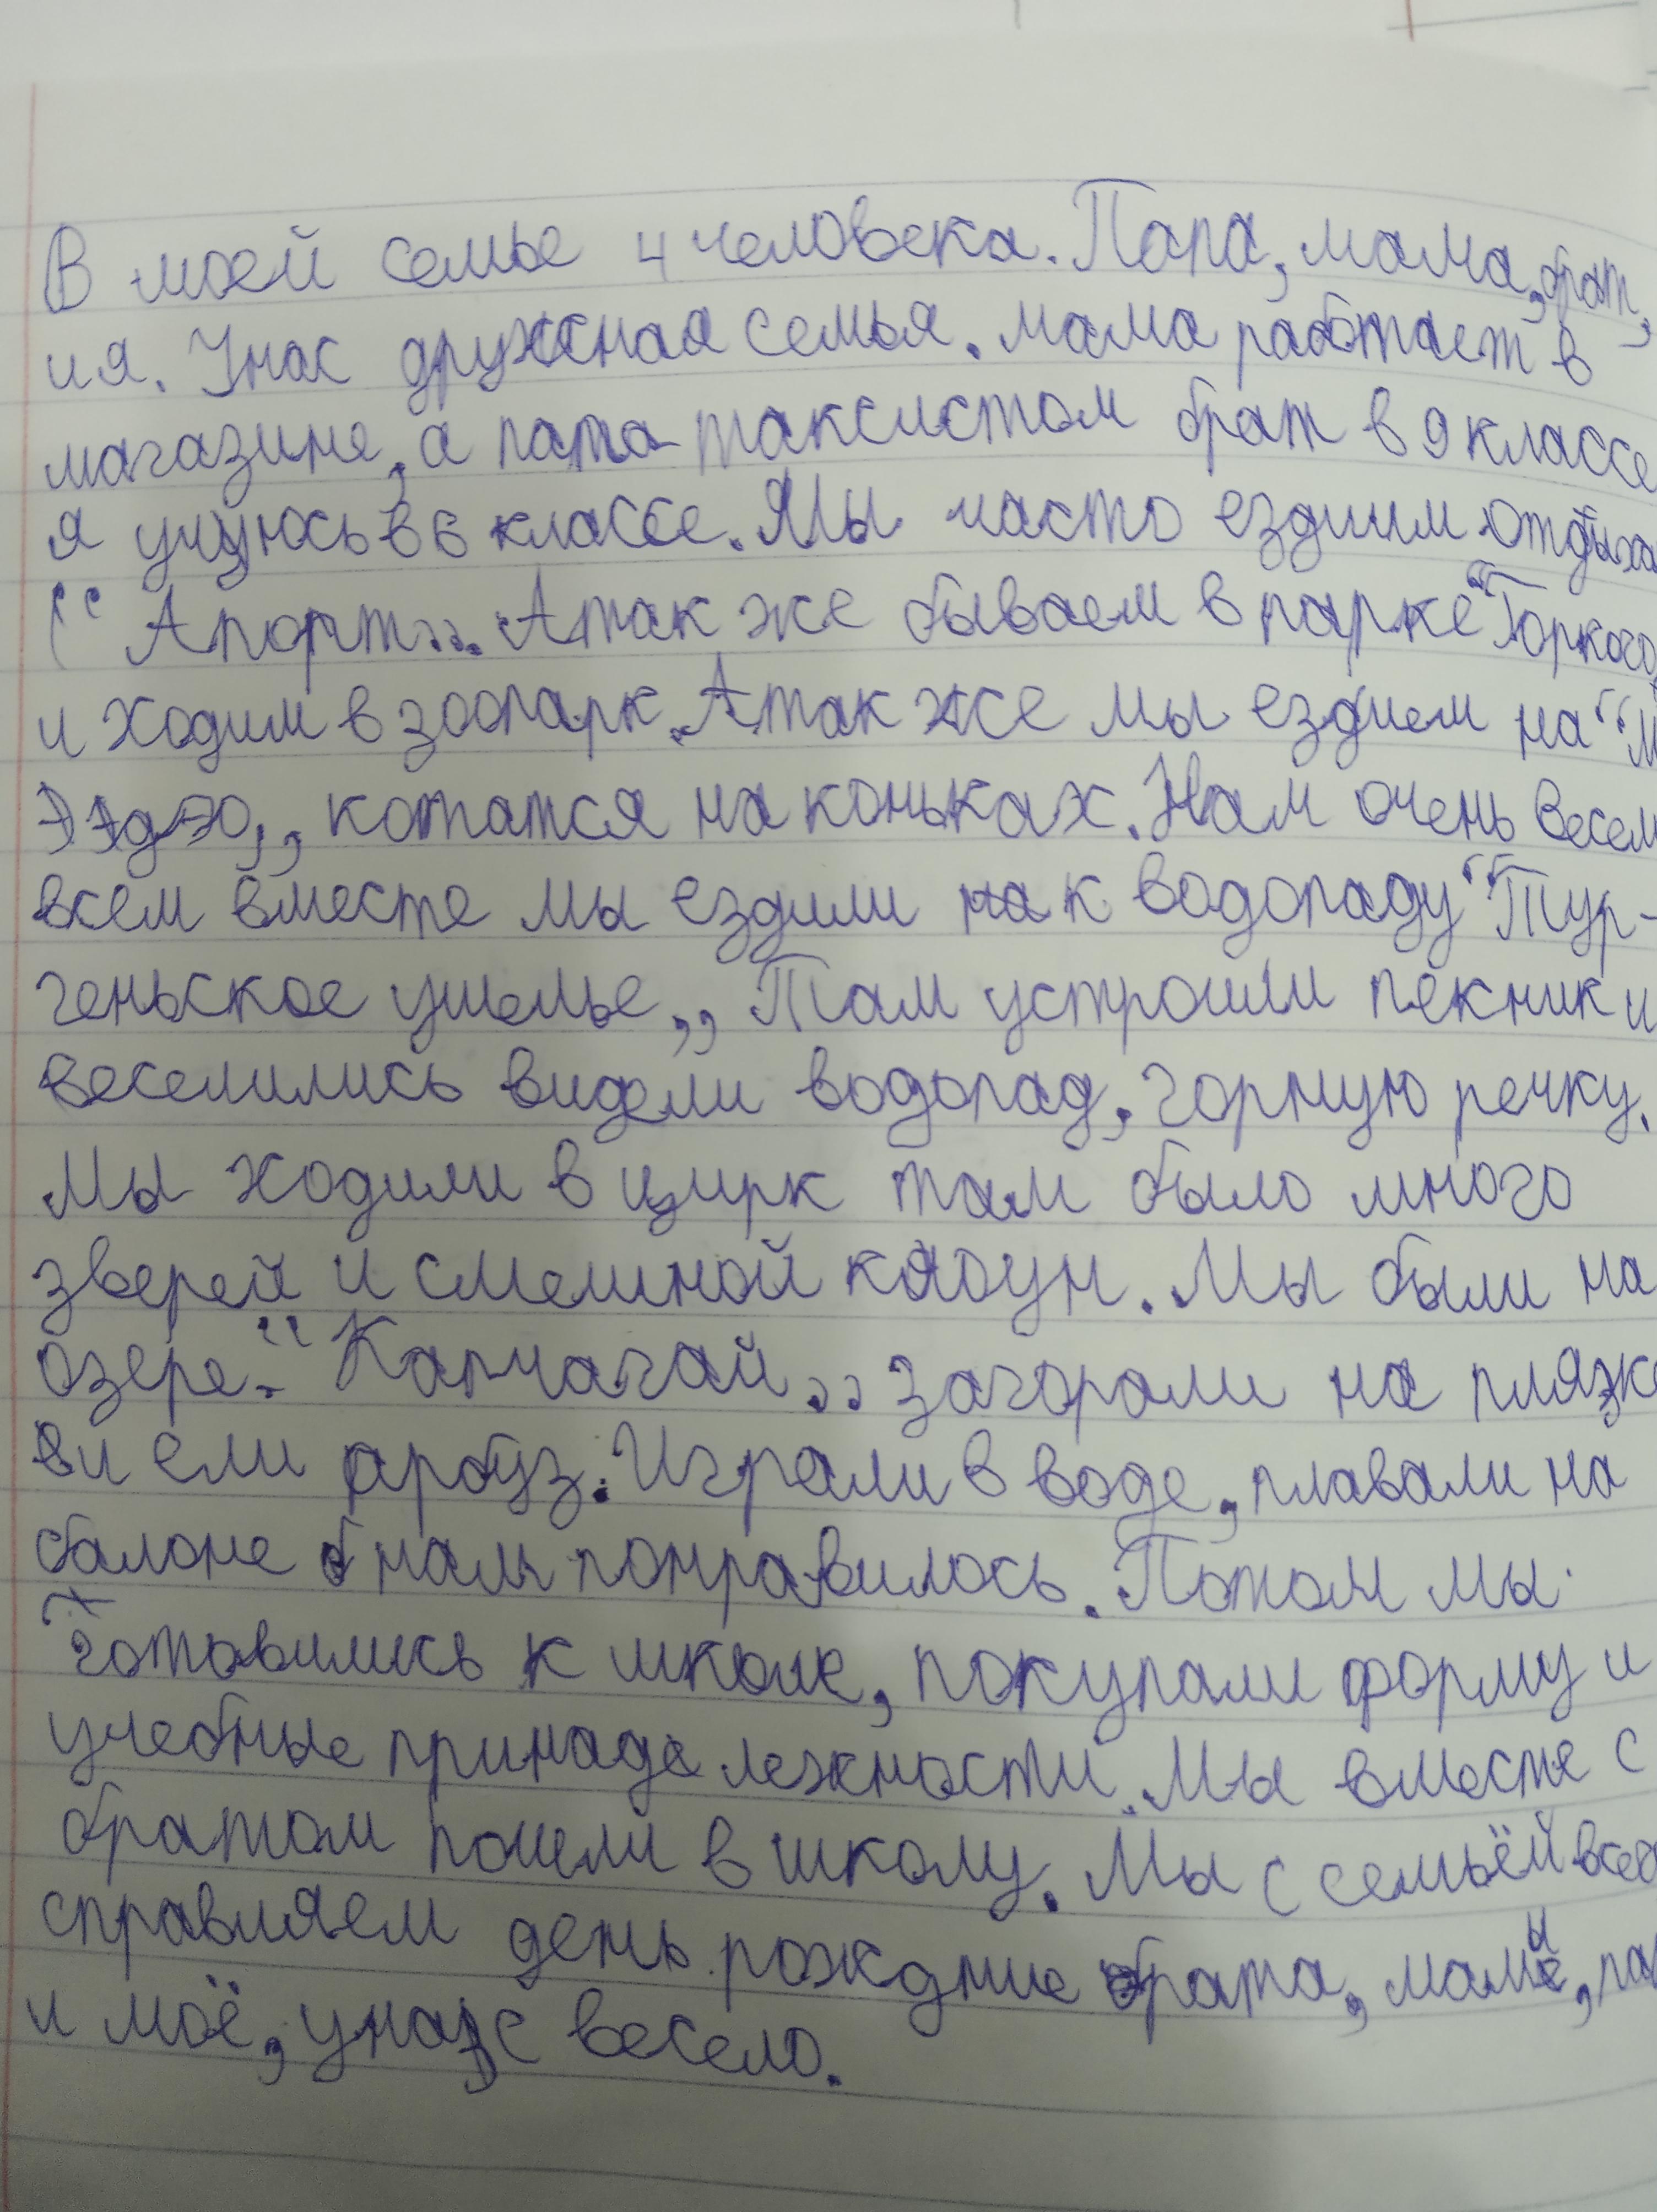 В моей семье 4 человека. Папа, мама, брат,
и я. Унас дружная семья. мама работает в
магазине, а папа таксистом брат в 9 классе
я учуюсь в 6 классе. Мы часто ездиим отдыха
“ Апорт„. Атак же бываем в парке “Горкого
и ходим в зоопарк. Атак же мы ездием на “М
ЭЭдЭО„ кататся на коньках. Нам очень весел
всем вместе мы ездили к водопаду “Тур-
геньское ушелье„ Там устроили пекник и
веселились видели водопад, горную речку.
Мы ходили в цирк там было много
зверей и смешной клоун. Мы были на
озере “Капчагай„ загорали на пляже
и ели арбуз. Играли в воде, плавали на
балоне нам понравилось. Потом мы
готовились к школе, покупали форму и
учебные принадележности. Мы вместе с
братом пошли в школу. Мы с семьёй всег
справляем день рождние брата, мамы, пап
и моё, унас весело.